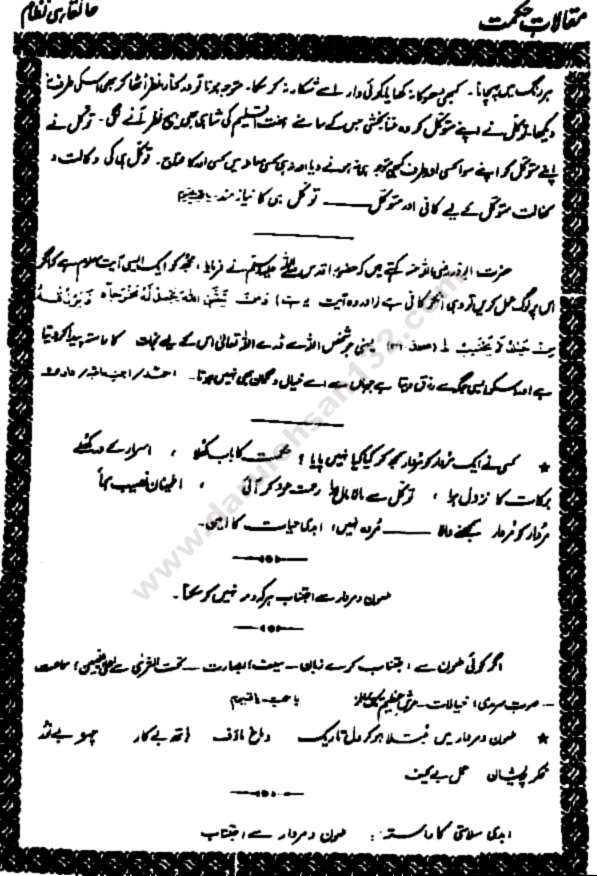 مقالات حکمت
خانقاہی نظام
ہر رنگ میں پہچانا۔ کبھی دھوکا نہ کھایا کوئی وار اسے شکار نہ کر سکا۔ متوجہ ہونا تو درکنار نظر اٹھا کر بھی اسکی طرف نہ
دیکھا۔ توکل نے اپنے متوکل کو وہ غنا بخشی جس کے سامنے ہفت اقلیم کی شاہی بھی ہیچ نظر آنے لگی۔ توکل نے
اپنے متوکل کو اپنے سوا کسی اور طرف کبھی متوجہ ہی نہ ہونے دیا اور نہ ہی کسی معاملہ میں کسی اور کا محتاج۔ توکل ہی کی وکالت و
کفالت متوکل کے لیے کافی اور متوکل ــــــ توکل ہی کا نیاز مند۔ یا حی یا قیوم
حضرت ابوذر رضی اللہ عنہ کہتے ہیں کہ حضور اقدس صلی اللہ علیہ وسلم نے فرمایا، مجھ کو ایک ایسی آیت معلوم ہے کہ اگر
اس پر لوگ عمل کریں تو وہی انکو کافی ہے (اور وہ آیت یہ ہے) وَمَنْ يَّتَّقِ اللهَ يَجْعَلْ لَّهُ مَخْرَجًا وَّ يَرْزُقْهُ
مِنْ حَيْثُ لَا يَحْتَسِبُ ط یعنی جو شخص اللہ سے ڈرے اللہ تعالیٰ اس کے لیے نجات کا راستہ پیدا کر دیتا
ہے اور اسکو ایسی جگہ سے رزق دیتا ہے جہاں سے اسے خیال و گمان بھی نہیں ہوتا۔ احمد / ابن ماجہ /
★ کسی نے ایک مُردار کو مُردار سمجھ کر کیا کیا نہیں پایا؟ حکمت کا باب کھلا ، اسرار کے در کھلے
برکات کا نزول ہوا ، توکل سے مالا مال ہوا رحمت عود کر آئی ، اطمینان نصیب ہوا
مُردار کو مُردار سمجھنے والا ــــــ مُردہ نہیں، ابدی حیات کا امین۔
طعون و مردار سے اجتناب ہر کہ و مہ نہیں کر سکتا۔
اگر کوئی طعون سے اجتناب کرے زبان ۔ سیف، بصارت ۔ تحت الثریٰ سے سماعت
۔ صوتِ سرمدی، خیالات ۔ عرشِ عظیم یا حی یا قیوم
★ طعون و مردار میں مبتلا ہو کر دل تاریک دماغ ماؤف ہاتھ بے کار چہرہ بے نور
فکر پریشان عمل بے کیف
ابدی سلامتی کا راستہ : طعون و مردار سے اجتناب
www.darulehsan132.com